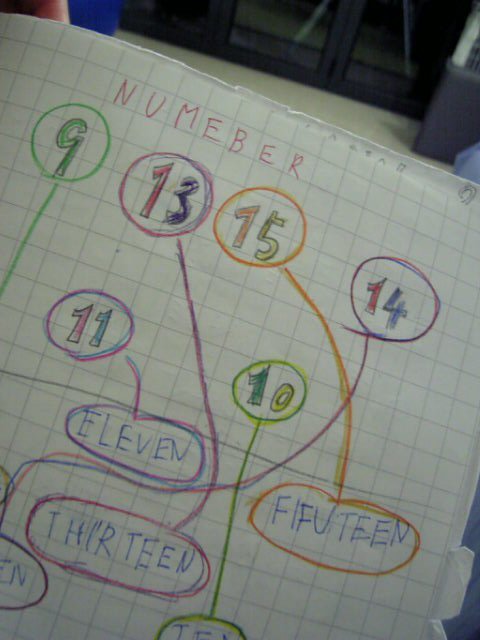 NUMEBER
9
13
15
14
11
10
ELEVEN
FIFUTEEN
THIRTEEN
EN
TEN